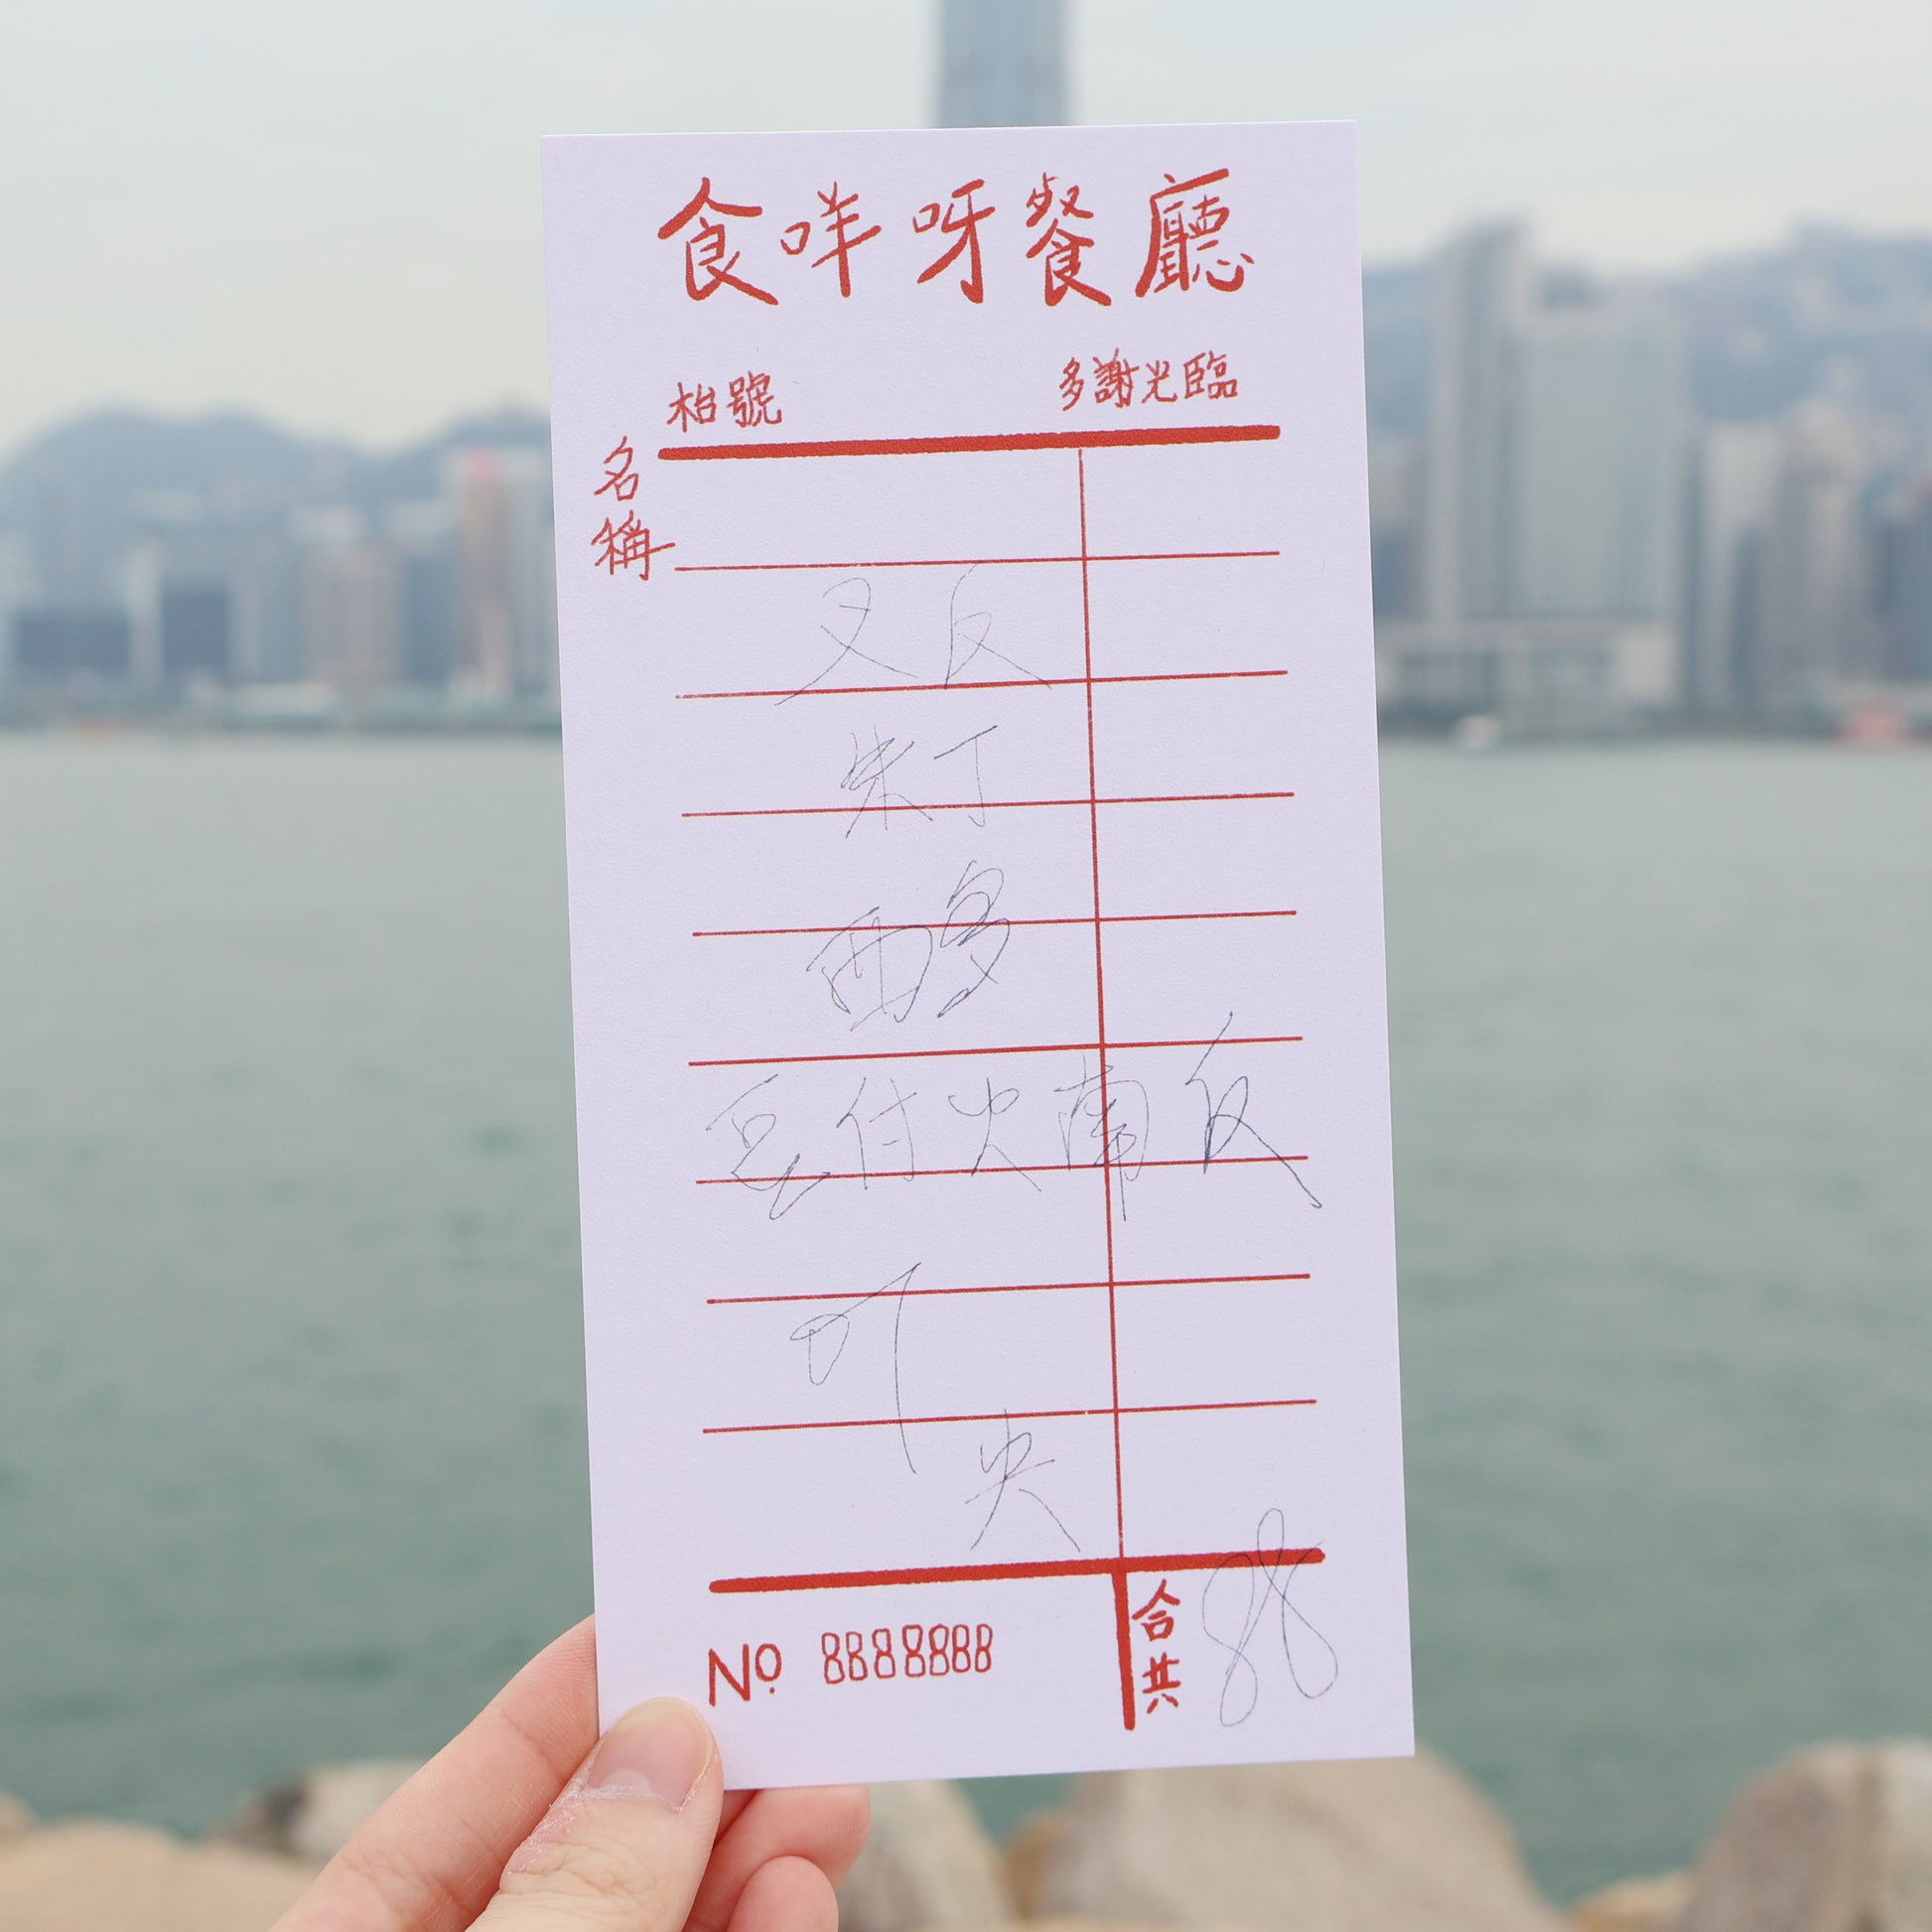 食咩呀餐廳
枱號 多謝光臨
名稱
叉反
朱丁
西多
豆付火南反
叮
央
No 8888888
合共 88